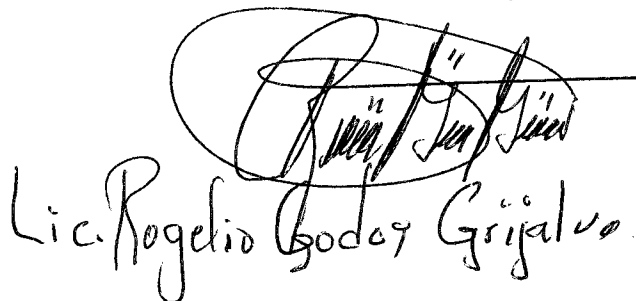 Lic. Rogelio Godoy Grijalva.